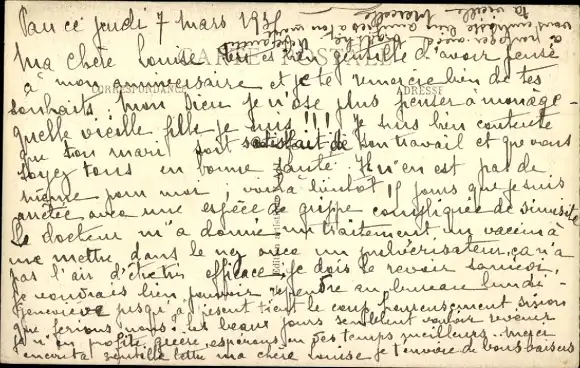 Pau ce jeudi 7 mars 193
Ma chère Louise tu es bien gentille d'avoir pensé
à mon anniversaire et je te remercie bien de tes
souhaits, mon Dieu je n'ose plus penser à mon âge
quelle vieille fille je suis !!! Je suis bien contente
que ton mari soit satisfait de son travail et que vous
soyez tous en bonne santé. Il n'en est pas de
même pour moi, voilà bientôt 11 jours que je suis
arrêtée avec une espèce de grippe compliquée de sinusite
Le docteur m'a donné un traitement un vaccin à
me mettre dans le nez avec un pulvérisateur, ça n'a
pas l'air d'être efficace, je dois le revoir samedi,
je voudrais bien pouvoir reprendre au bureau lundi
Geneviève jusqu'à présent tient le coup heureusement sinon
que ferions nous. Les beaux jours semblent vouloir revenir
je n'en profite guère, espérons en des temps meilleurs. Merci
encore ta gentille lettre ma chère Louise je t'envoie de bons baisers
à partager avec
ta vieille
Marcelle
CARTE POSTALE
CORRESPONDANCE
ADRESSE